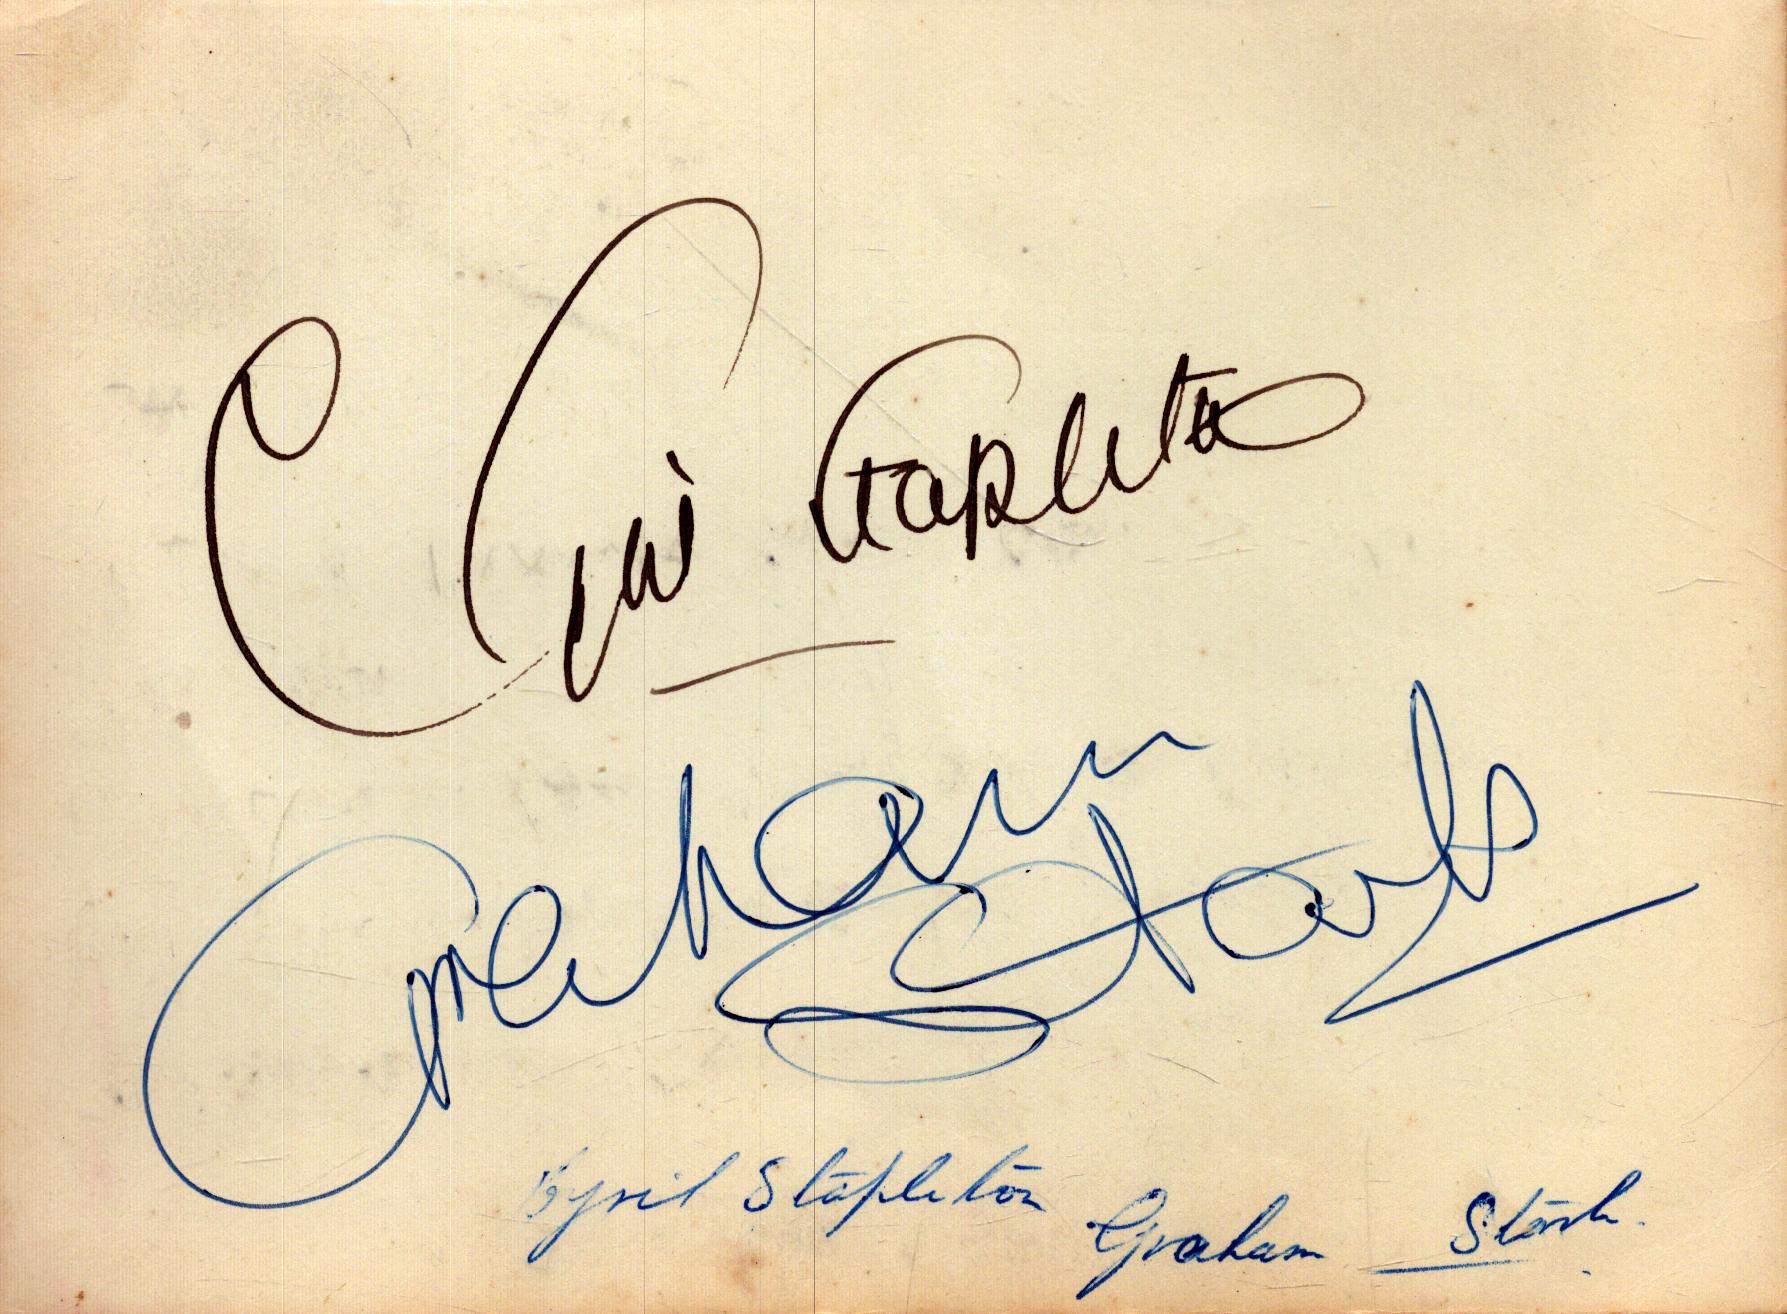 Cyril Stapleton
Graham Stark
Cyril Stapleton Graham Stark.